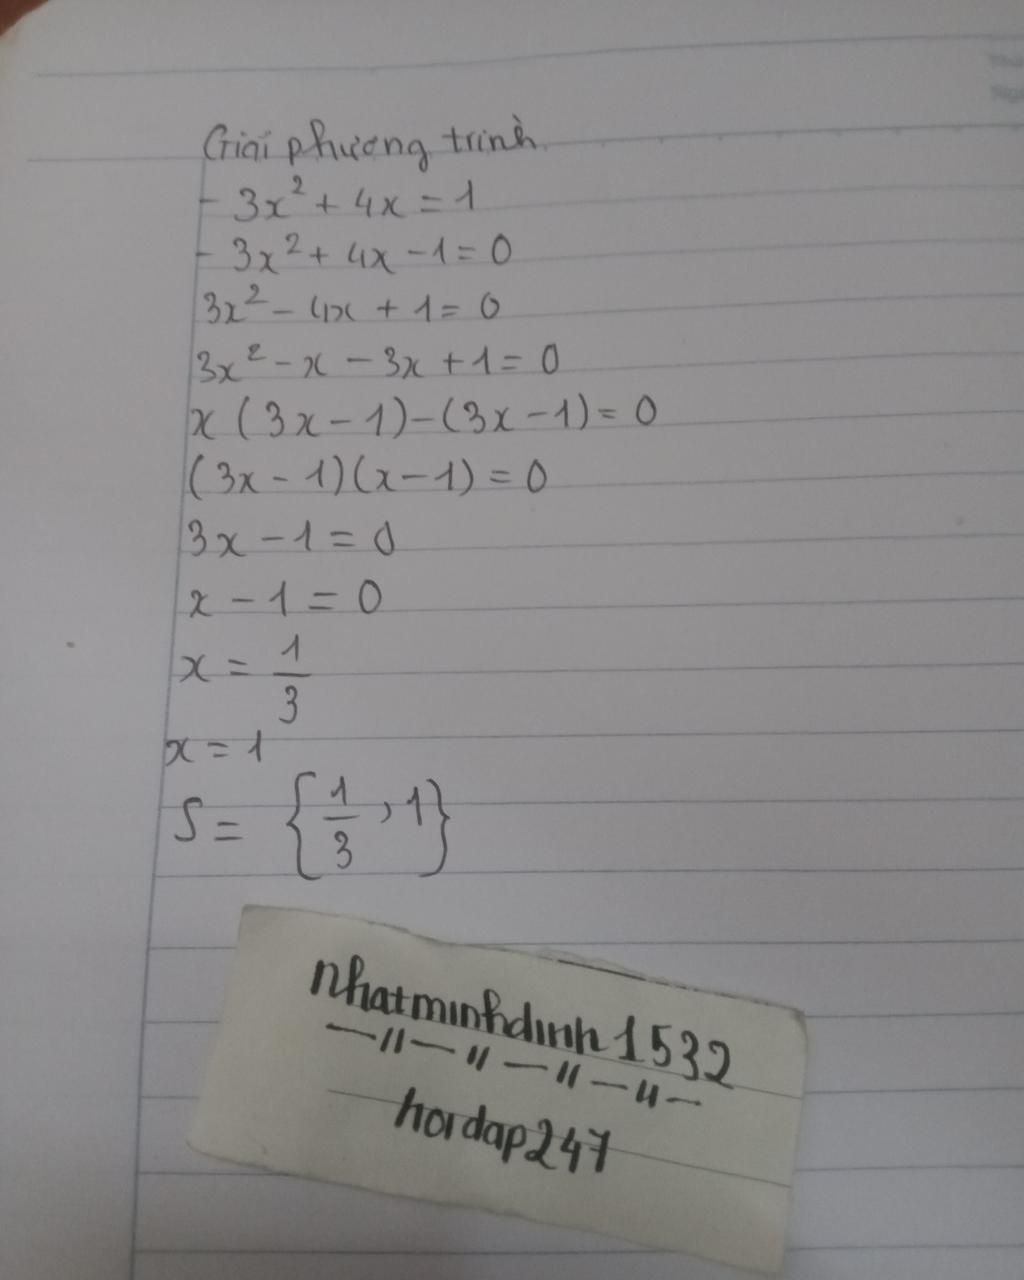 Giải phương trình
- 3x² + 4x = 1
- 3x² + 4x - 1 = 0
3x² - 4x + 1 = 0
3x² - x - 3x + 1 = 0
x (3x - 1) - (3x - 1) = 0
(3x - 1)(x - 1) = 0
3x - 1 = 0
x - 1 = 0
x = 1/3
x = 1
S = {1/3, 1}
nhatminhdinh1532
—//—//—//—//—
hoidap247